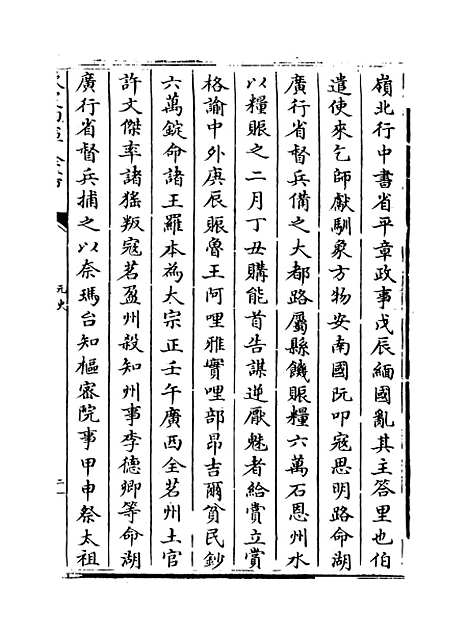 嶺北行中書省平章政事戊辰緬國亂其主答里也伯
遣使來乞師獻馴象方物安南國阮叩寇思明路命湖
廣行省督兵備之大都路屬縣饑賑糧六萬石恩州水
以糧賑之二月丁丑購能首告謀逆厭魅者給賞立賞
格諭中外庚辰賑魯王阿哩雅實哩部昂吉爾貧民鈔
六萬錠命諸王羅本為大宗正壬午廣西全茗州土官
許文傑率諸猺叛寇茗盈州殺知州事李德卿等命湖
廣行省督兵捕之以奈瑪台知樞密院事甲申祭太祖
元史
二